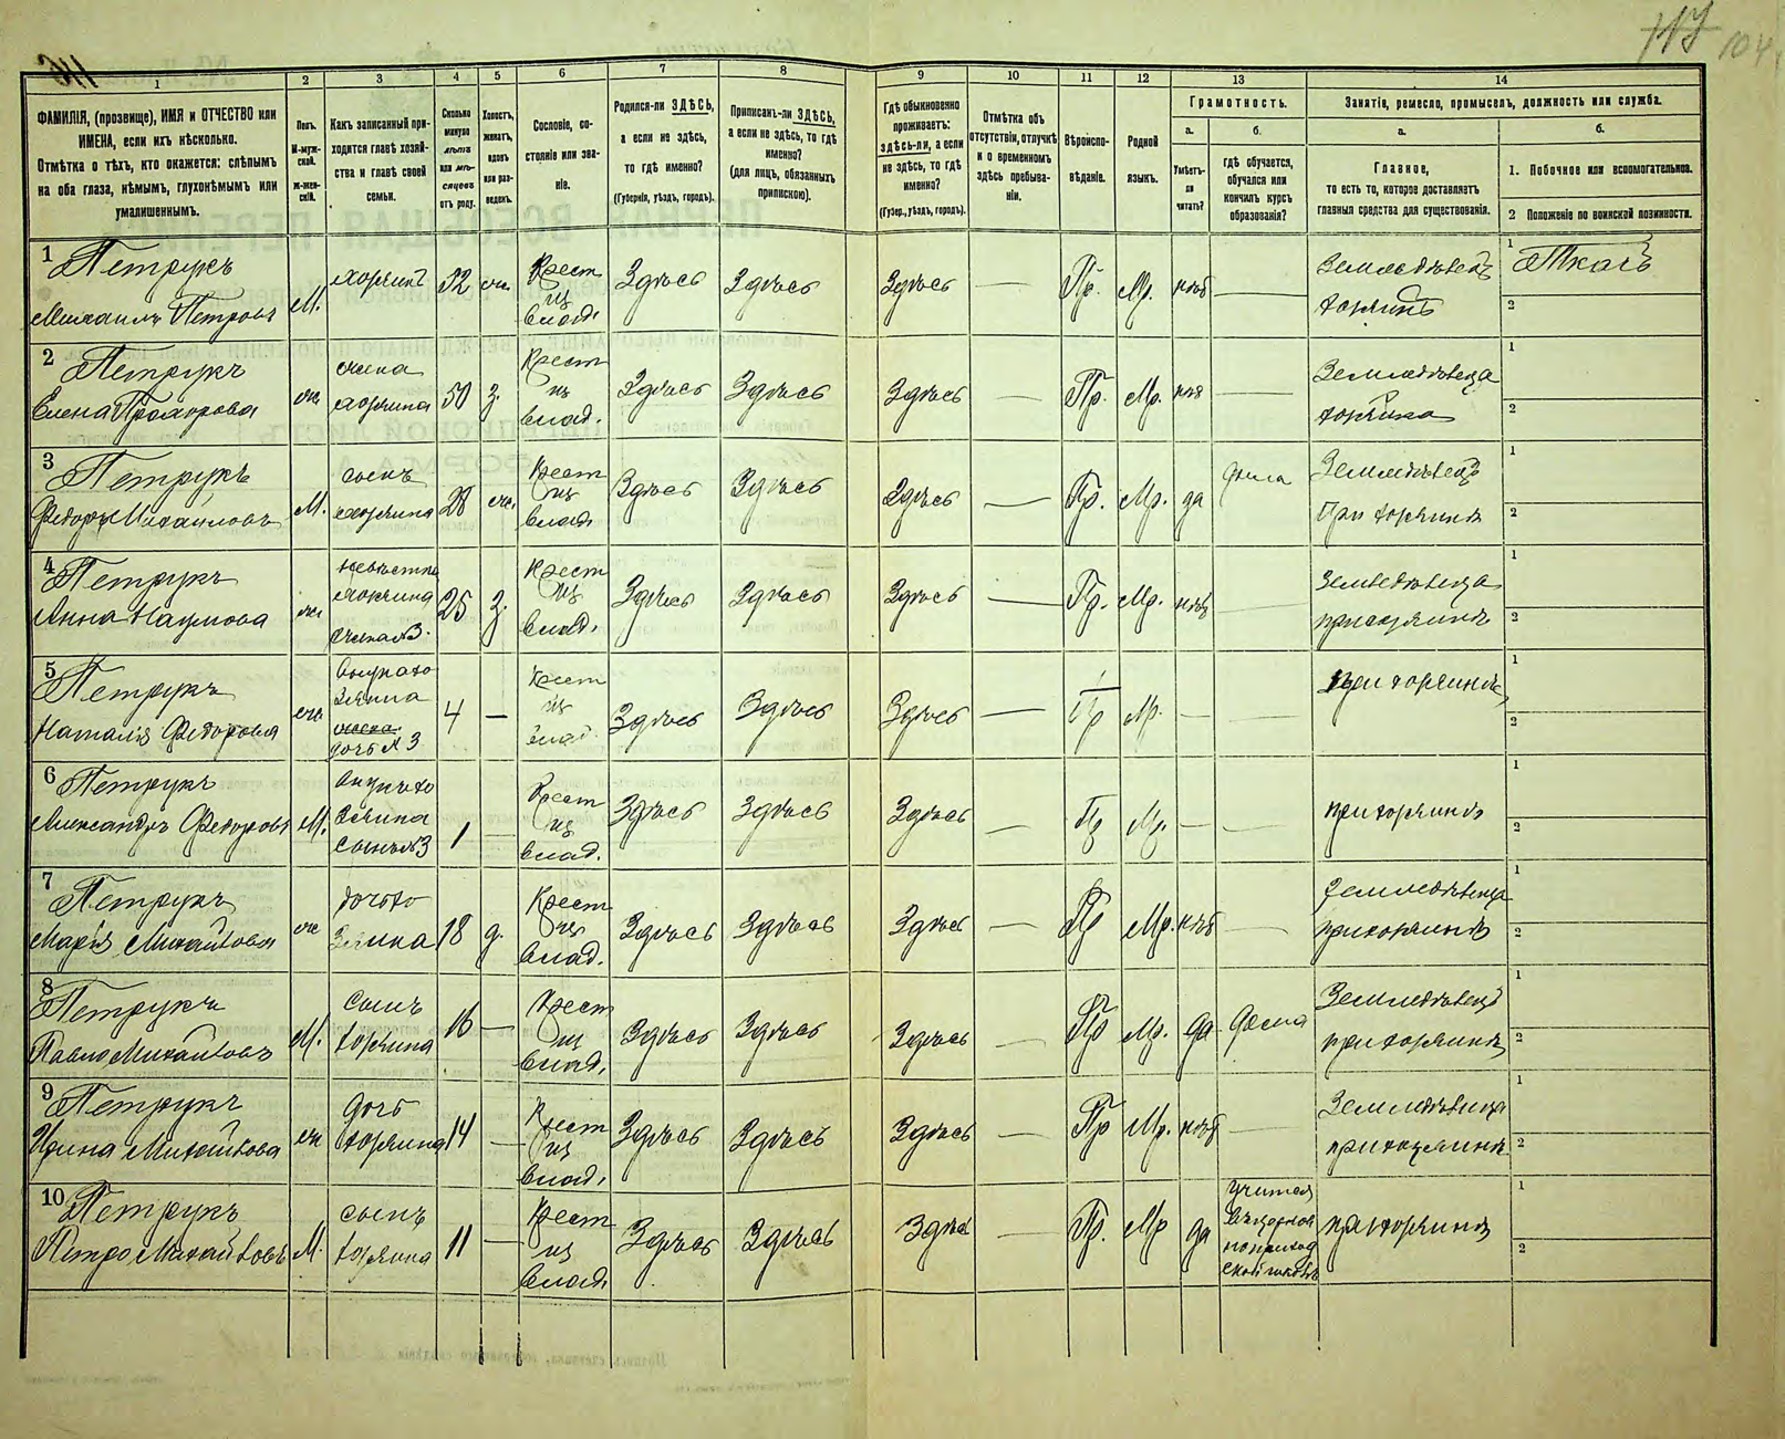 117 104
116
1 2 3 4 5 6 7 8 9 10 11 12 13 14
ФАМИЛІЯ, (прозвище), ИМЯ и ОТЧЕСТВО или
ИМЕНА, если ихъ нѣсколько.
Отмѣтка о тѣхъ, кто окажется: слѣпымъ
на оба глаза, нѣмымъ, глухонѣмымъ или
умалишеннымъ.
Полъ.
М-муж-
ской.
Ж-жен-
скій.
Какъ записанный при-
ходится главѣ хозяй-
ства и главѣ своей
семьи.
Сколько
минуло
лѣтъ
или мѣ-
сяцевъ
отъ роду.
Холостъ,
женатъ,
вдовъ
или раз-
веденъ.
Сословіе, со-
стояніе или зва-
ніе.
Родился-ли ЗДѢСЬ,
а если не здѣсь,
то гдѣ именно?
(Губернія, уѣздъ, городъ).
Приписанъ-ли ЗДѢСЬ,
а если не здѣсь, то гдѣ
именно?
(для лицъ, обязанныхъ
припискою).
Гдѣ обыкновенно
проживаетъ:
здѣсь-ли, а если
не здѣсь, то гдѣ
именно?
(Губер., уѣздъ, городъ).
Отмѣтка объ
отсутствіи, отлучкѣ
и о временномъ
здѣсь пребыва-
ніи.
Вѣроиспо-
вѣданіе.
Родной
языкъ.
Грамотность.
а. б.
Умѣетъ-
ли
читать?
гдѣ обучается,
обучался или
кончилъ курсъ
образованія?
Занятіе, ремесло, промыселъ, должность или служба.
а. б.
Главное,
то есть то, которое доставляетъ
главныя средства для существованія.
1. Побочное или вспомогательное.
2 Положеніе по воинской повинности.
1 Петрукъ
Михаилъ Петровъ
М. 52
Крест
изъ
влад.
Здѣсь Здѣсь Здѣсь — Пр. Мр. нѣтъ —
Земледѣлецъ
хозяинъ
1 Ткачъ
2
2 Петрукъ
Елена Прохорова
жена
хозяина
50 з.
Крест
изъ
влад.
Здѣсь Здѣсь Здѣсь — Пр. Мр. —
Земледѣлица
1
2
3 Петрукъ
Федоръ Михаиловъ
М.
сынъ
хозяина
28 ж.
Крест
изъ
влад.
Здѣсь Здѣсь Здѣсь — Пр. Мр. да дома
Земледѣлецъ
При хозяинѣ
1
2
4 Петрукъ
Анна Наумова
ж.
невѣстка
хозяина
жена №3.
25 з.
Крест
изъ
влад.
Здѣсь Здѣсь Здѣсь — Пр. Мр. нѣтъ —
при хозяинѣ
1
2
5 Петрукъ
Наталія Федорова
ж.
внучка хо
зяина
жена
дочь № 3
4 —
Крест
изъ
влад.
Здѣсь Здѣсь Здѣсь — Пр Мр. — —
при хозяинѣ
1
2
6 Петрукъ
Александръ Федоровъ
М.
внукъ хо
зяина
сынъ №3
1 —
Крест
изъ
влад.
Здѣсь Здѣсь Здѣсь — Пр Мр. — —
при хозяинѣ
1
2
7 Петрукъ
Марія Михайлова
ж
дочь хо
зяина
18 д.
Крест
изъ
влад.
Здѣсь Здѣсь Здѣсь — Пр Мр. нѣтъ —
Земледѣлица
при хозяинѣ
1
2
8 Петрукъ
Павло Михайловъ
М.
сынъ
хозяина
16 —
Крест
изъ
влад.
Здѣсь Здѣсь Здѣсь — Пр Мр. да дома
Земледѣлецъ
при хозяинѣ
1
2
9 Петрукъ
Ирина Михайлова
ж
дочь
хозяина
14 —
Крест
изъ
влад.
Здѣсь Здѣсь Здѣсь — Пр Мр. нѣтъ —
Земледѣлица
при хозяинѣ
1
2
10 Петрукъ
Петро Михайловъ
М.
сынъ
хозяина
11 —
Крест
изъ
влад
Здѣсь Здѣсь Здѣсь — Пр. Мр да
учится
школѣ
при хозяинѣ
1
2